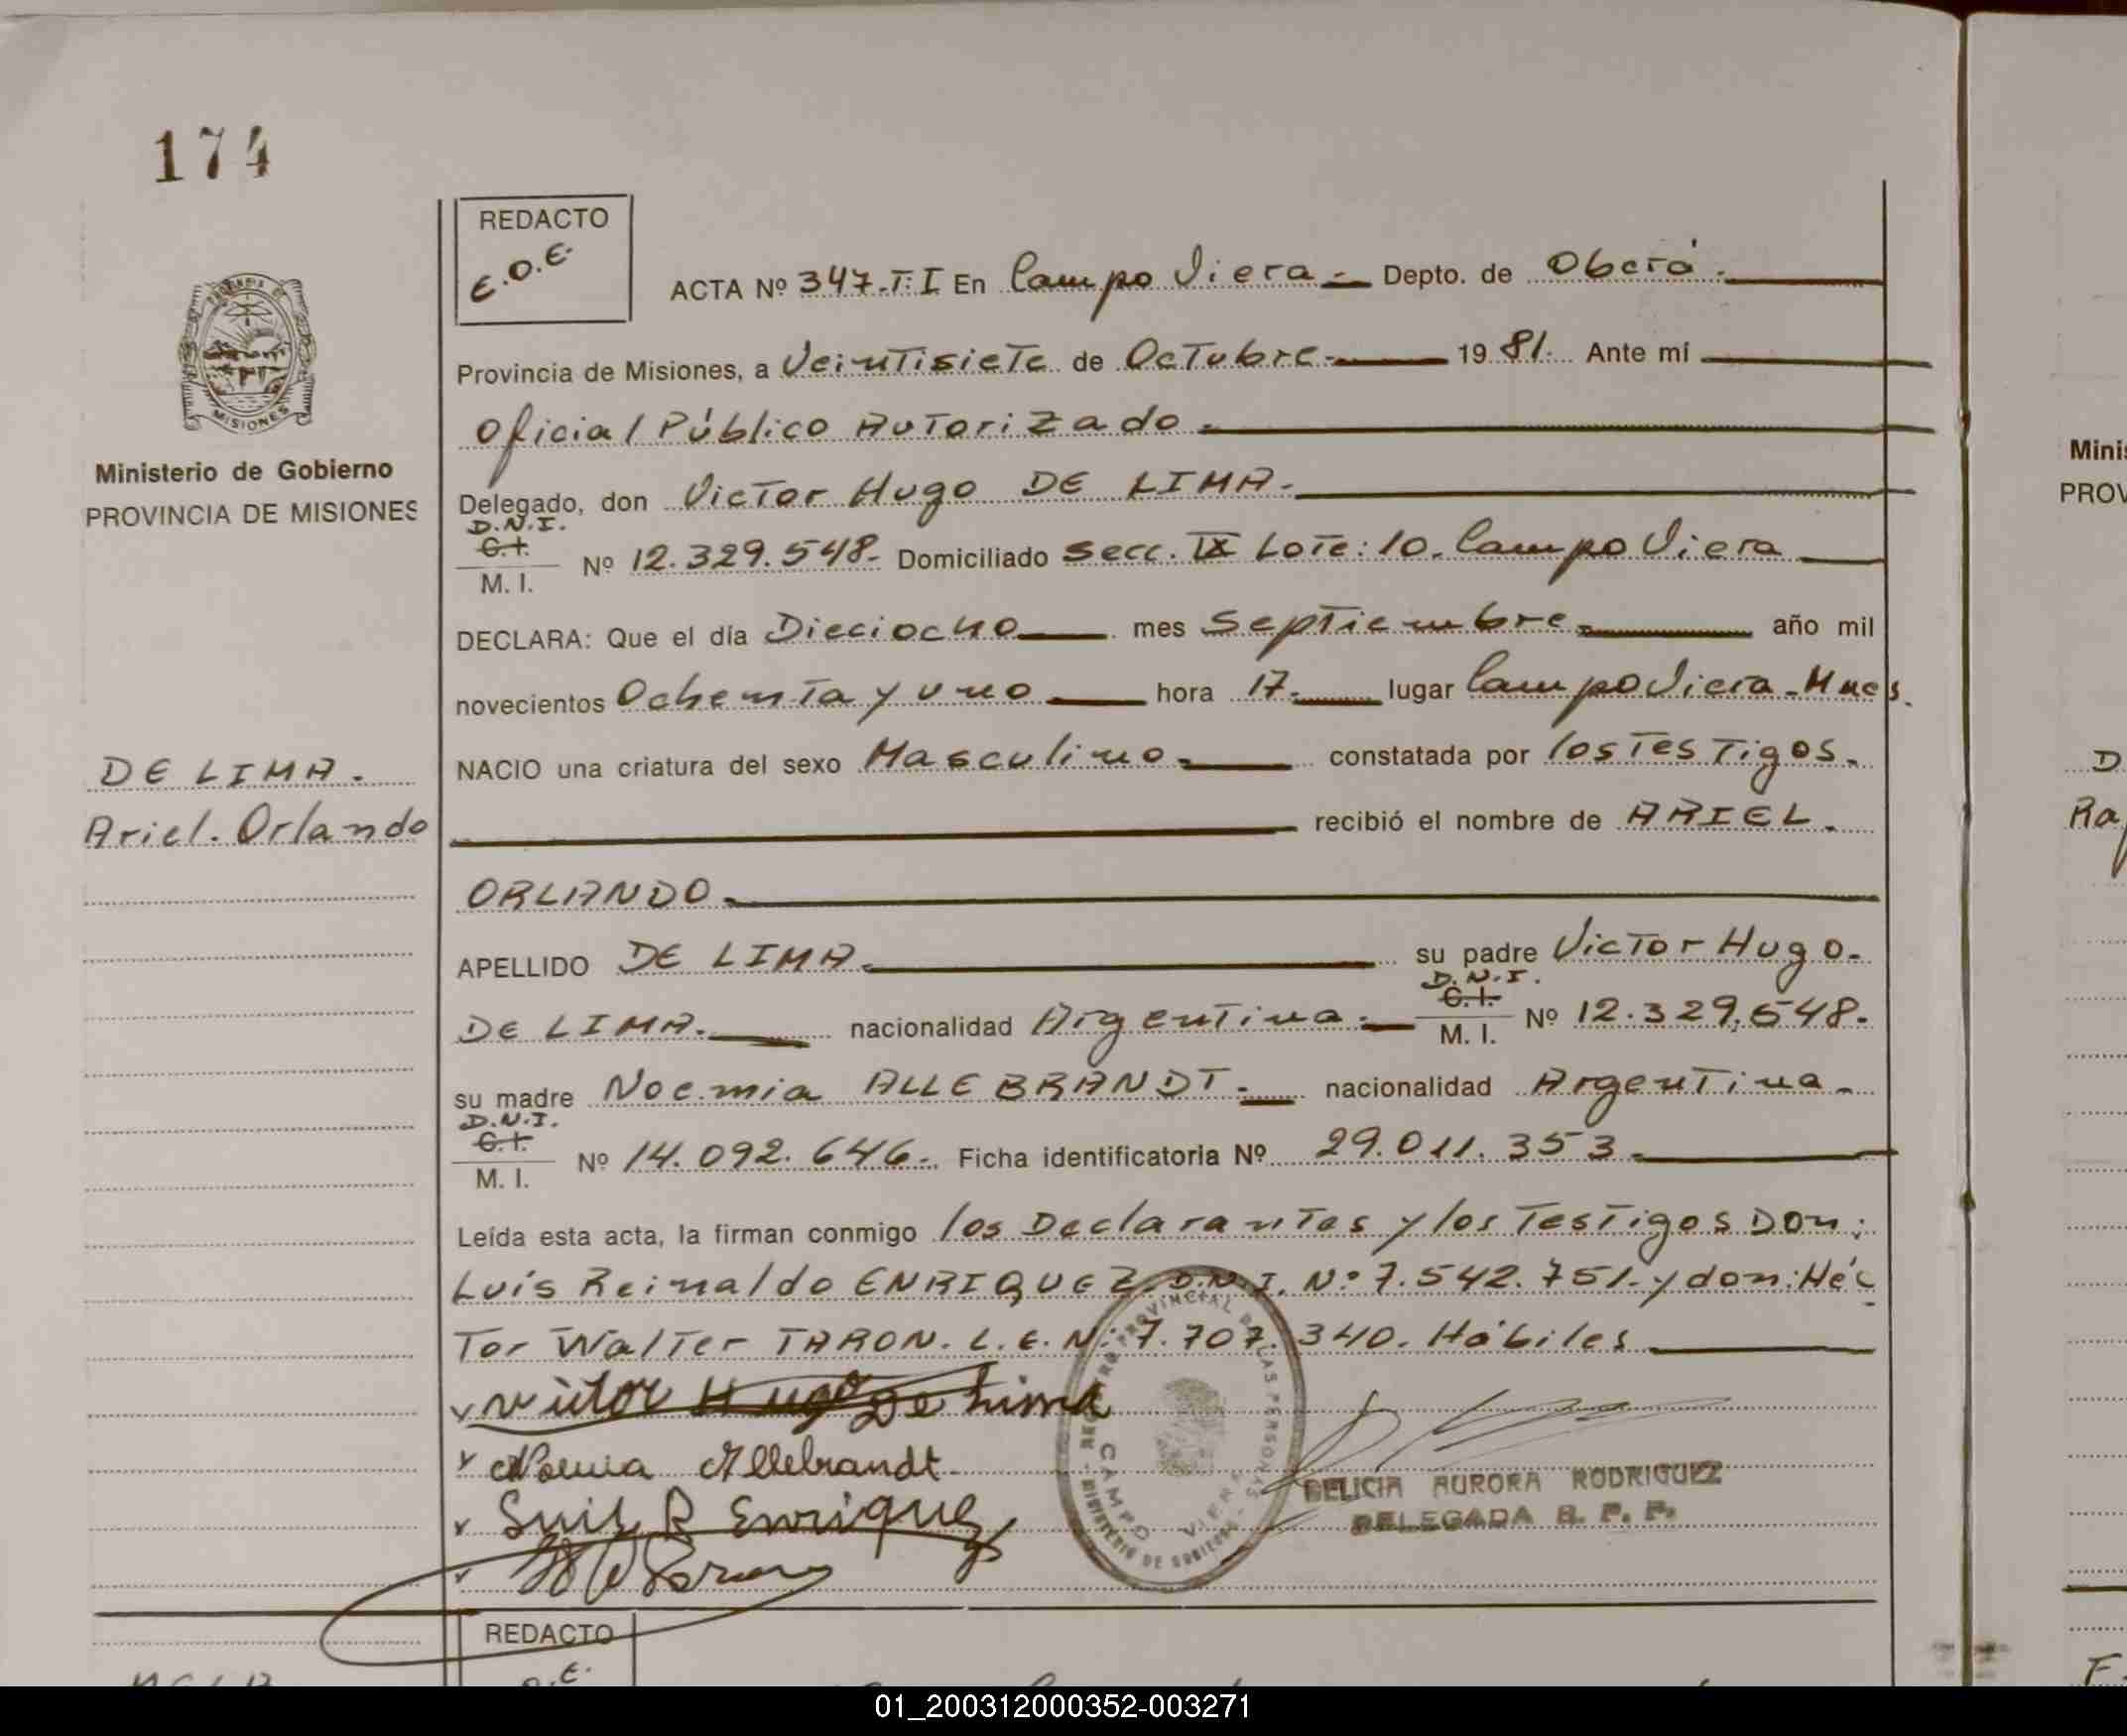 174
REDACTO
E.O.E.
ACTA Nº 347.T.I En Campo Viera.- Depto. de Oberá.
Provincia de Misiones, a Veintisiete de Octubre. 19 81. Ante mí
Oficial Público Autorizado.
Ministerio de Gobierno
PROVINCIA DE MISIONES
Delegado, don Victor Hugo DE LIMA.
D.N.I.
C.I.
M. I. Nº 12.329.548. Domiciliado Secc. IX Lote: 10. Campo Viera
DECLARA: Que el día Dieciocho mes Septiembre. año mil
novecientos Ochenta y uno hora 17. lugar Campo Viera - Mnes.
DE LIMA.
NACIO una criatura del sexo Masculino. constatada por los Testigos.
Ariel. Orlando
recibió el nombre de ARIEL.
ORLANDO.
APELLIDO DE LIMA. su padre Victor Hugo.
D.N.I.
DE LIMA. nacionalidad Argentina. C.I. M. I. Nº 12.329.548.
su madre Noemia ALLEBRANDT. nacionalidad Argentina.
D.N.I.
C.I.
M. I. Nº 14.092.646. Ficha identificatoria Nº 29.011.353.
Leída esta acta, la firman conmigo los Declarantes y los Testigos Don:
Luís Reinaldo ENRIQUEZ. D.N.I. Nº 7.542.751. y don: Héc
Tor Walter TARON. L.E.N: 7.707.340. Hábiles
Victor Hugo De Lima
Noemia Allebrandt
Luis R Enriquez
REGISTRO PROVINCIAL DE LAS PERSONAS
CAMPO VIERA
MINISTERIO DE GOBIERNO
DELICIA AURORA RODRIGUEZ
DELEGADA R. P. P.
REDACTO
Minis
PROV
D
Ra
F
01_200312000352-003271